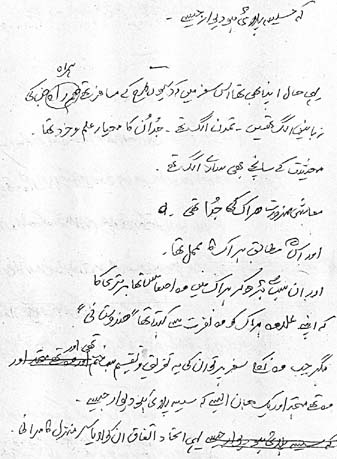 کہ سیسہ پلائی ہوئی دیوار جیسے -
ہمراہ
یہی حال اپنا بھی تھا اس سفر میں کہ کئی طرح کے مسافر تھے ہمراہ جن کی
زبانیں الگ تھیں - تمدن الگ تھے - جدا ان کا معیار علم و خرد تھا -
معیشت کے سانچے بھی سارے الگ تھے -
معاشی ضرورت ہر اک کی جدا تھی -
اور اس کے مطابق ہر اک کا عمل تھا -
اور ان سب سے بڑھ کر ہر اک میں وہ احساس تھا برتری کا
کہ اپنے علاوہ ہر اک کو وہ نفرت سے کہتا تھا "ہندوستانی"
مگر جب وہ نکلا سفر پر تو ان کی یہ تفریق و تقسیم سب ختم تھی اور
وہ تھے متحد اور یک جان ایسے کہ سیسہ پلائی ہوئی دیوار جیسے -
کہ سیسہ پلائی ہوئی دیوار جیسے یہی اتحاد و اتفاق ان کو لایا سر منزل کامرانی -